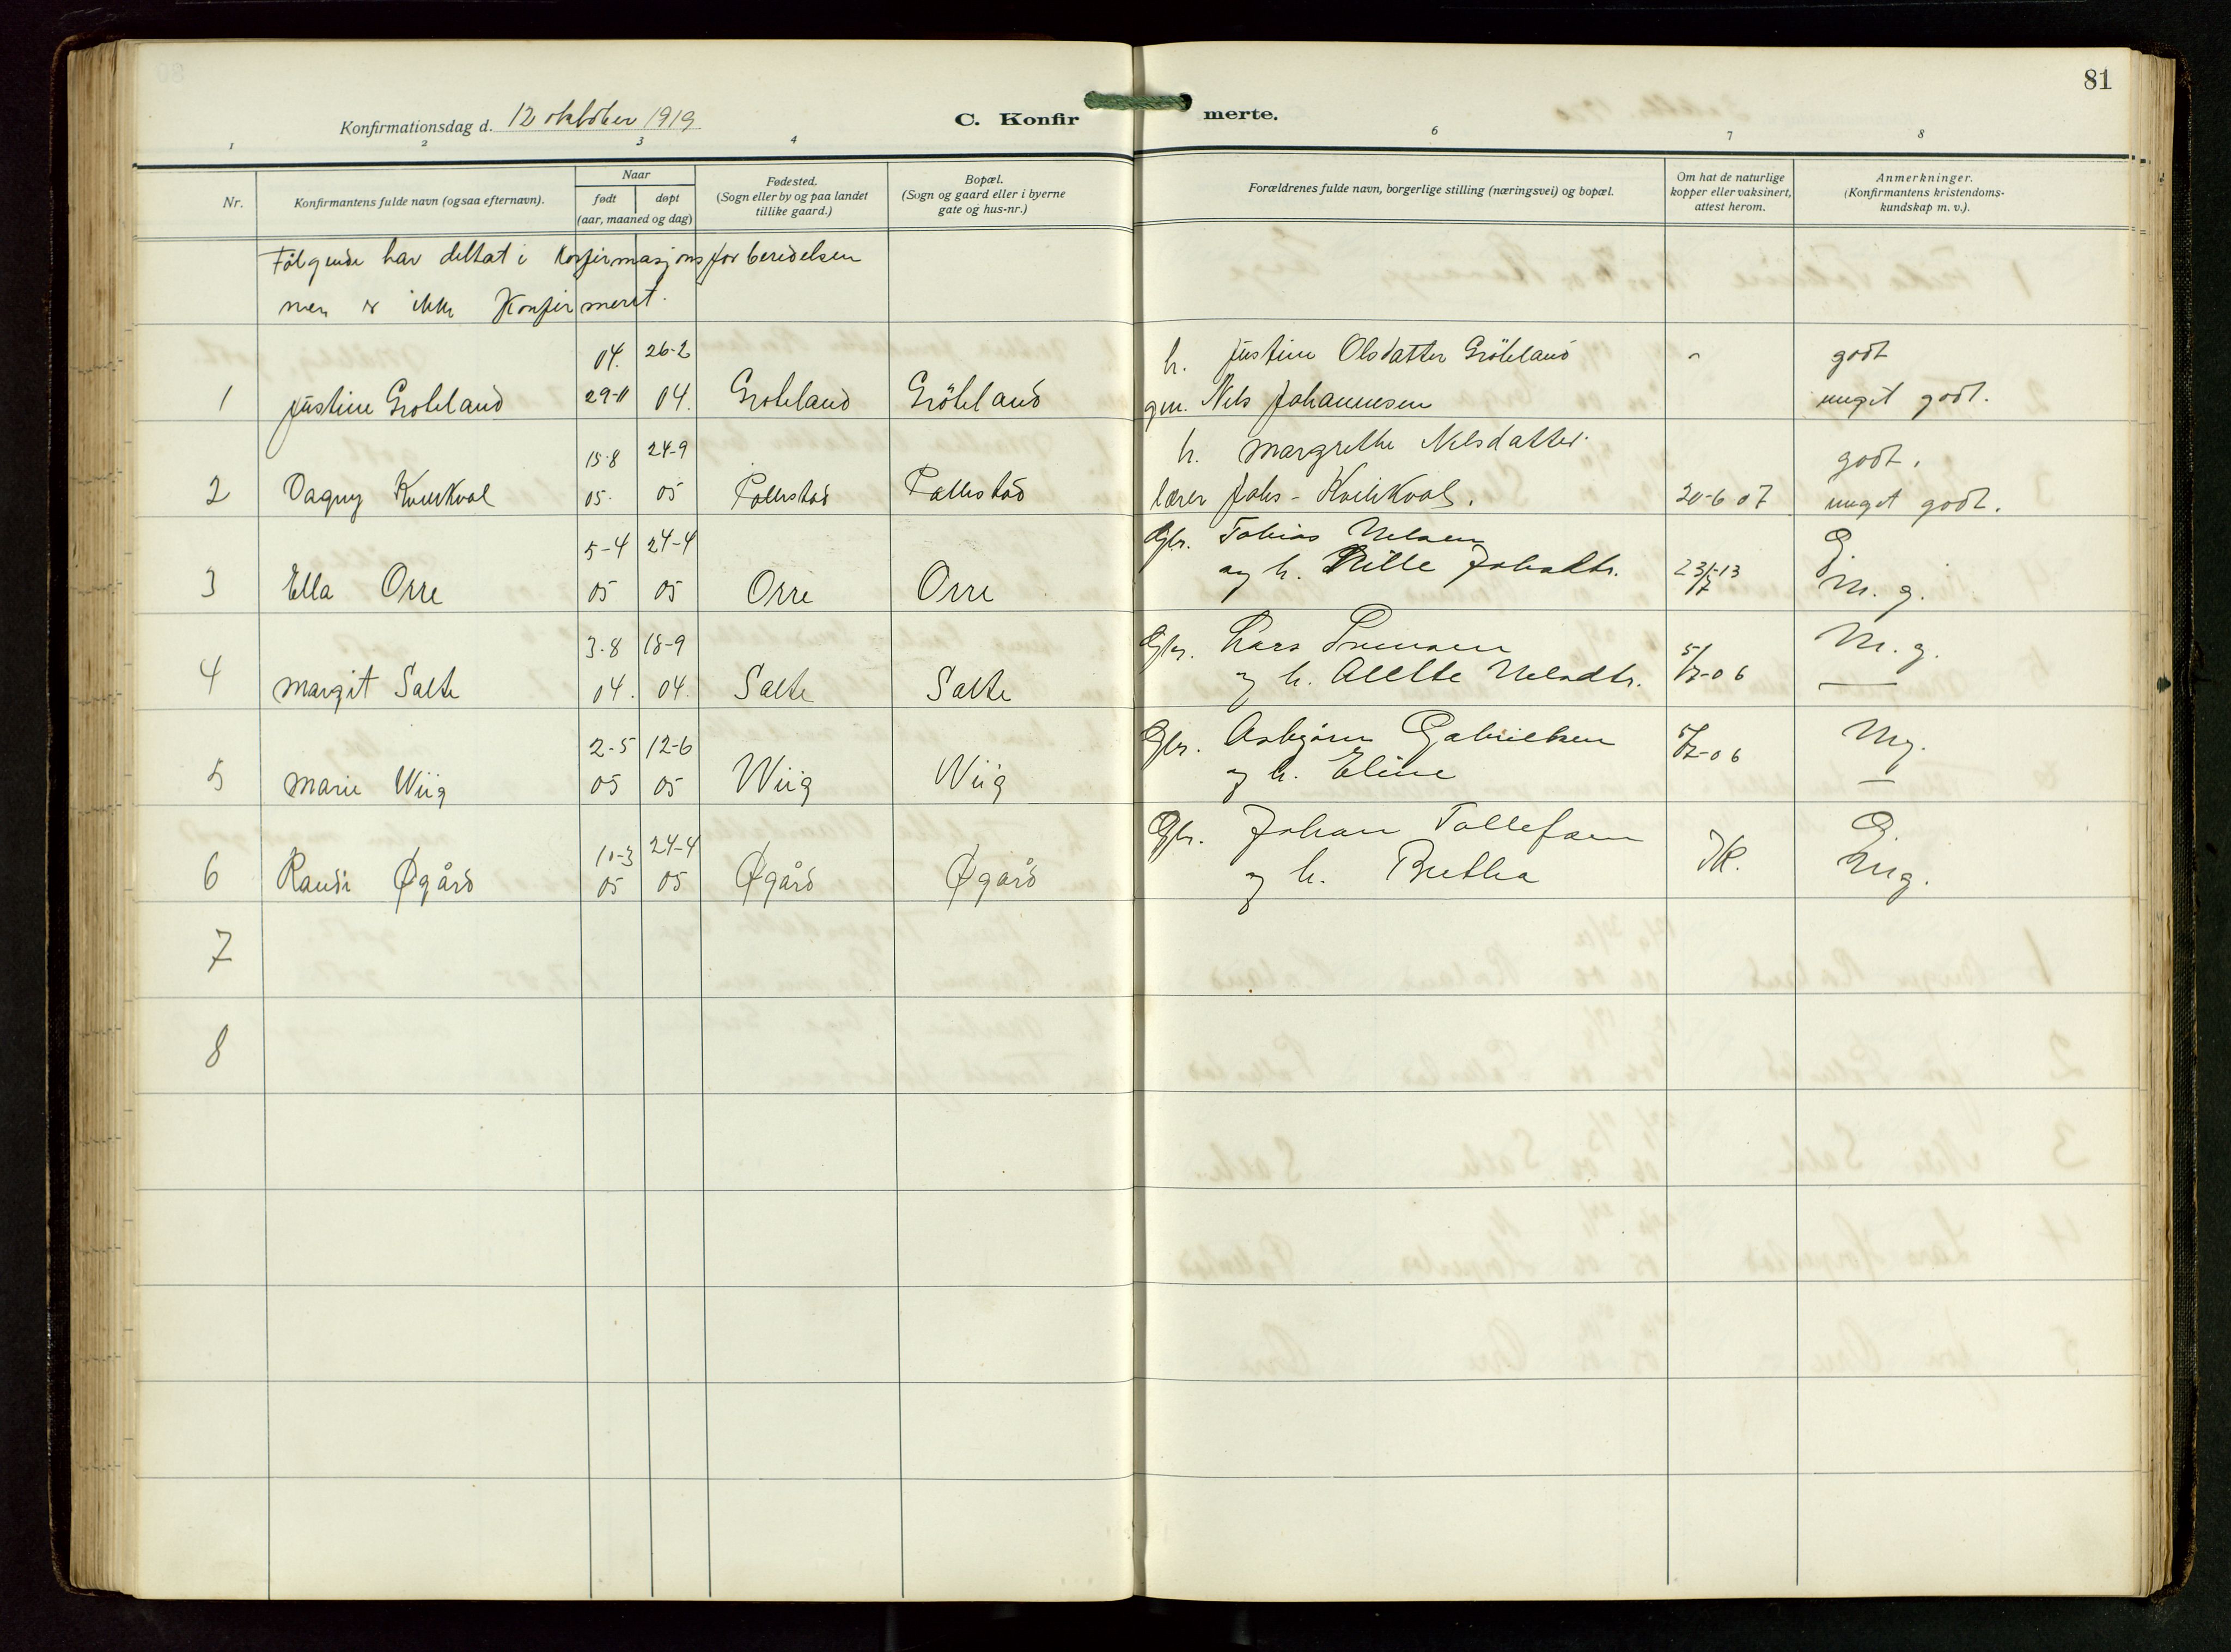 81
Konfirmationsdag d. 12 oktober 1919
C. Konfirmerte.
1 2 3 4 6 7 8
Nr.
Konfirmantens fulde navn (ogsaa efternavn).
Naar
født døpt
(aar, maaned og dag)
Fødested.
(Sogn eller by og paa landet
tillike gaard.)
Bopæl.
(Sogn og gaard eller i byerne
gate og hus-nr.)
Forældrenes fulde navn, borgerlige stilling (næringsvei) og bopæl.
Om hat de naturlige
kopper eller vaksinert,
attest herom.
Anmerkninger.
(Konfirmantens kristendoms-
kundskap m. v.).
Følgende har deltat i Konfirmasjonsforberedelsen
men er ikke Konfirmert.
04. 26-2 h. Justine Olsdatter Gröteland - godt
1 Justine Groteland 29-11 04. Groteland Gröteland gm. Nils Johannesen meget godt.
15-8 24-9 h. Margrethe Nilsdatter godt.
2 Dagny 05. 05 Pollestad Pollestad lærer Johs. 20-6 07 meget godt.
5-4 24-4 Gbr. Tobias Nelsen G.
3 Ella Orre 05 05 Orre Orre og h. Johsdtr. 23/7-13 M. g.
3-8 18-9 Gbr. Lars M. g.
4 Margit Salte 04. 04. Salte Salte og h. Alette Nelsdtr. 5/7-06 —
2-5 12-6 Gbr. Asbjørn Gabrielsen 5/7-06 Mg.
5 Marie Wiig 05 05 Wiig Wiig og h. Eline —
10-3 24-4 Gbr. Johan Tollefsen G.
6 Randi Øgård 05 05 Øgård Øgård og h. Bertha IK. Mg.
7
8